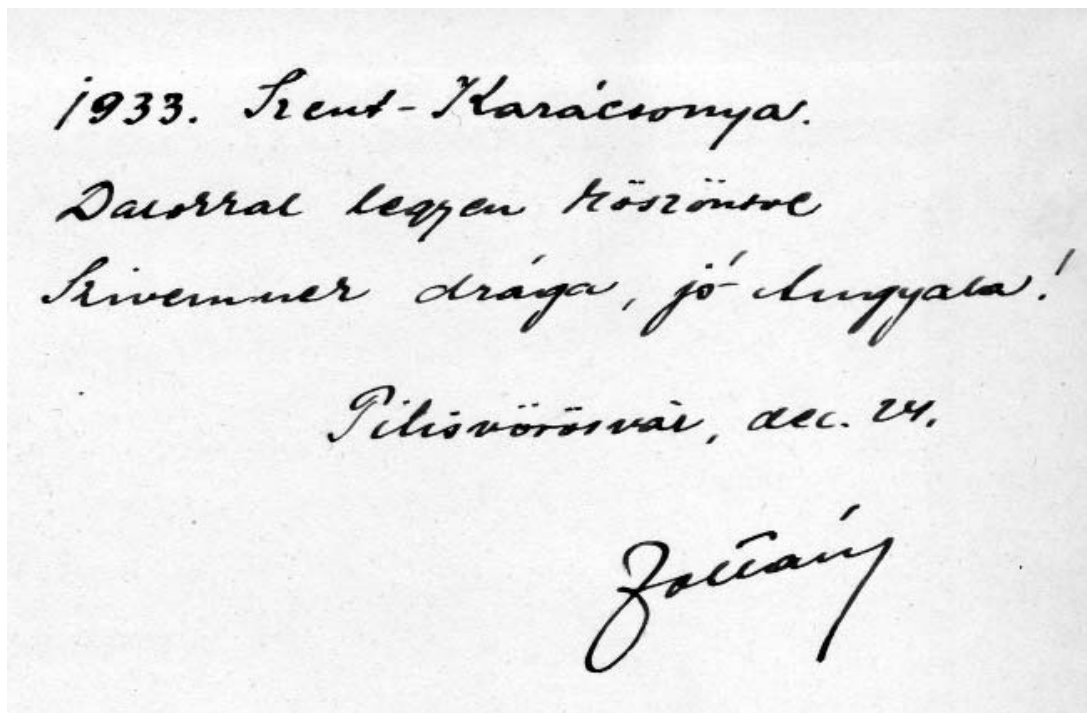 1933. Szent-Karácsonya.
Dalokkal legyen köszöntve
Szivemnek drága, jó Angyala!
Pilisvörösvár, dec. 24.
Zoltán